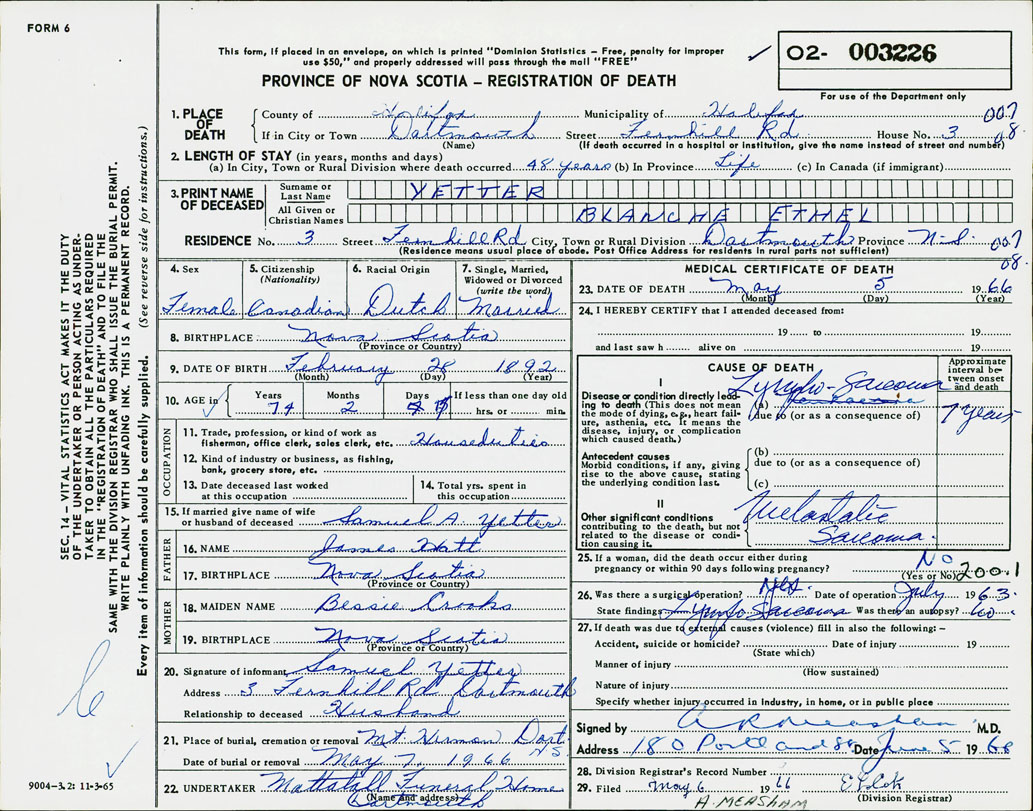 FORM 6
This form, if placed in an envelope, on which is printed "Dominion Statistics – Free, penalty for improper
use $50," and properly addressed will pass through the mail "FREE"
PROVINCE OF NOVA SCOTIA – REGISTRATION OF DEATH
O2- 003226
For use of the Department only
1. PLACE OF DEATH County of Halifax Municipality of Halifax 007
If in City or Town Dartmouth Street Fernhill Rd House No. 3 08
(Name) (If death occurred in a hospital or institution, give the name instead of street and number)
2. LENGTH OF STAY (in years, months and days)
(a) In City, Town or Rural Division where death occurred 48 years (b) In Province Life (c) In Canada (if immigrant)
3. PRINT NAME OF DECEASED Surname or Last Name YETTER
All Given or Christian Names BLANCHE ETHEL
RESIDENCE No. 3 Street Fernhill Rd City, Town or Rural Division Dartmouth Province N-S. 007
(Residence means usual place of abode. Post Office Address for residents in rural parts not sufficient) 08.
4. Sex 5. Citizenship (Nationality) 6. Racial Origin 7. Single, Married, Widowed or Divorced (write the word)
Female Canadian Dutch Married
8. BIRTHPLACE Nova Scotia
(Province or Country)
9. DATE OF BIRTH February 28 1892
(Month) (Day) (Year)
10. AGE in Years Months Days If less than one day old
74 2 hrs. or min.
OCCUPATION
11. Trade, profession, or kind of work as
fisherman, office clerk, sales clerk, etc. Houseduties
12. Kind of industry or business, as fishing,
bank, grocery store, etc.
13. Date deceased last worked at this occupation
14. Total yrs. spent in this occupation
15. If married give name of wife
or husband of deceased Samuel A. Yetter
FATHER
16. NAME James Hatt
17. BIRTHPLACE Nova Scotia
(Province or Country)
MOTHER
18. MAIDEN NAME Bessie Crooks
19. BIRTHPLACE Nova Scotia
(Province or Country)
20. Signature of informant Samuel Yetter
Address 3 Fernhill Rd Dartmouth
Relationship to deceased Husband
21. Place of burial, cremation or removal Mt. Hermon Dart NS
Date of burial or removal May 7, 1966
22. UNDERTAKER Mattatall Funeral Home
(Name and address) Dartmouth
MEDICAL CERTIFICATE OF DEATH
23. DATE OF DEATH May 5 1966
(Month) (Day) (Year)
24. I HEREBY CERTIFY that I attended deceased from:
19 to 19
and last saw h alive on 19
CAUSE OF DEATH
Approximate interval between onset and death
I
Disease or condition directly leading to death (This does not mean the mode of dying, e.g., heart failure, asthenia, etc. It means the disease, injury, or complication which caused death.)
(a) Lympho-Sarcoma
due to (or as a consequence of) 7 years
Antecedent causes
Morbid conditions, if any, giving rise to the above cause, stating the underlying condition last.
(b)
due to (or as a consequence of)
(c)
II
Other significant conditions
contributing to the death, but not related to the disease or condition causing it.
Metastatic
Sarcoma.
25. If a woman, did the death occur either during
pregnancy or within 90 days following pregnancy? No
(Yes or No) 200.1
26. Was there a surgical operation? Yes. Date of operation July 1963.
State findings Lympho Sarcoma Was there an autopsy? no.
27. If death was due to external causes (violence) fill in also the following: –
Accident, suicide or homicide? Date of injury 19
(State which)
Manner of injury
(How sustained)
Nature of injury
Specify whether injury occurred in industry, in home, or in public place
Signed by M.D.
Address 180 Portland St Date June 5 1966
28. Division Registrar's Record Number
29. Filed May 6 1966
(Division Registrar)
A. MEASHAM
SEC. 14 – VITAL STATISTICS ACT MAKES IT THE DUTY
OF THE UNDERTAKER OR PERSON ACTING AS UNDER-
TAKER TO OBTAIN ALL THE PARTICULARS REQUIRED
IN THE "REGISTRATION OF DEATH" AND TO FILE THE
SAME WITH THE DIVISION REGISTRAR WHO SHALL ISSUE THE BURIAL PERMIT.
WRITE PLAINLY WITH UNFADING INK. THIS IS A PERMANENT RECORD.
Every item of information should be carefully supplied. (See reverse side for instructions.)
9004-3.2: 11-3-65